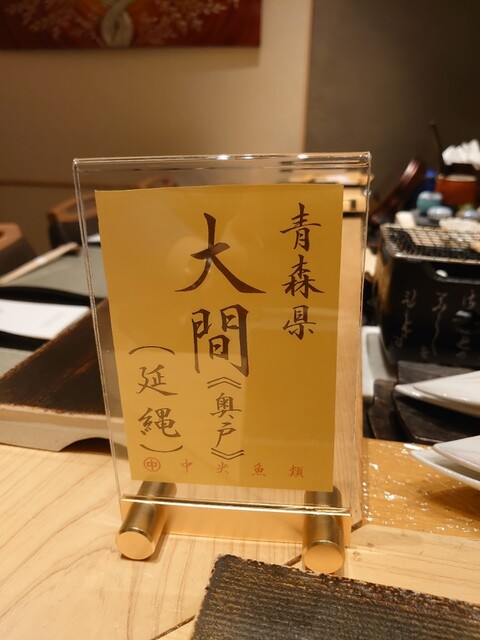 青森県
大間《奥戸》
（延縄）
㊥中央魚類